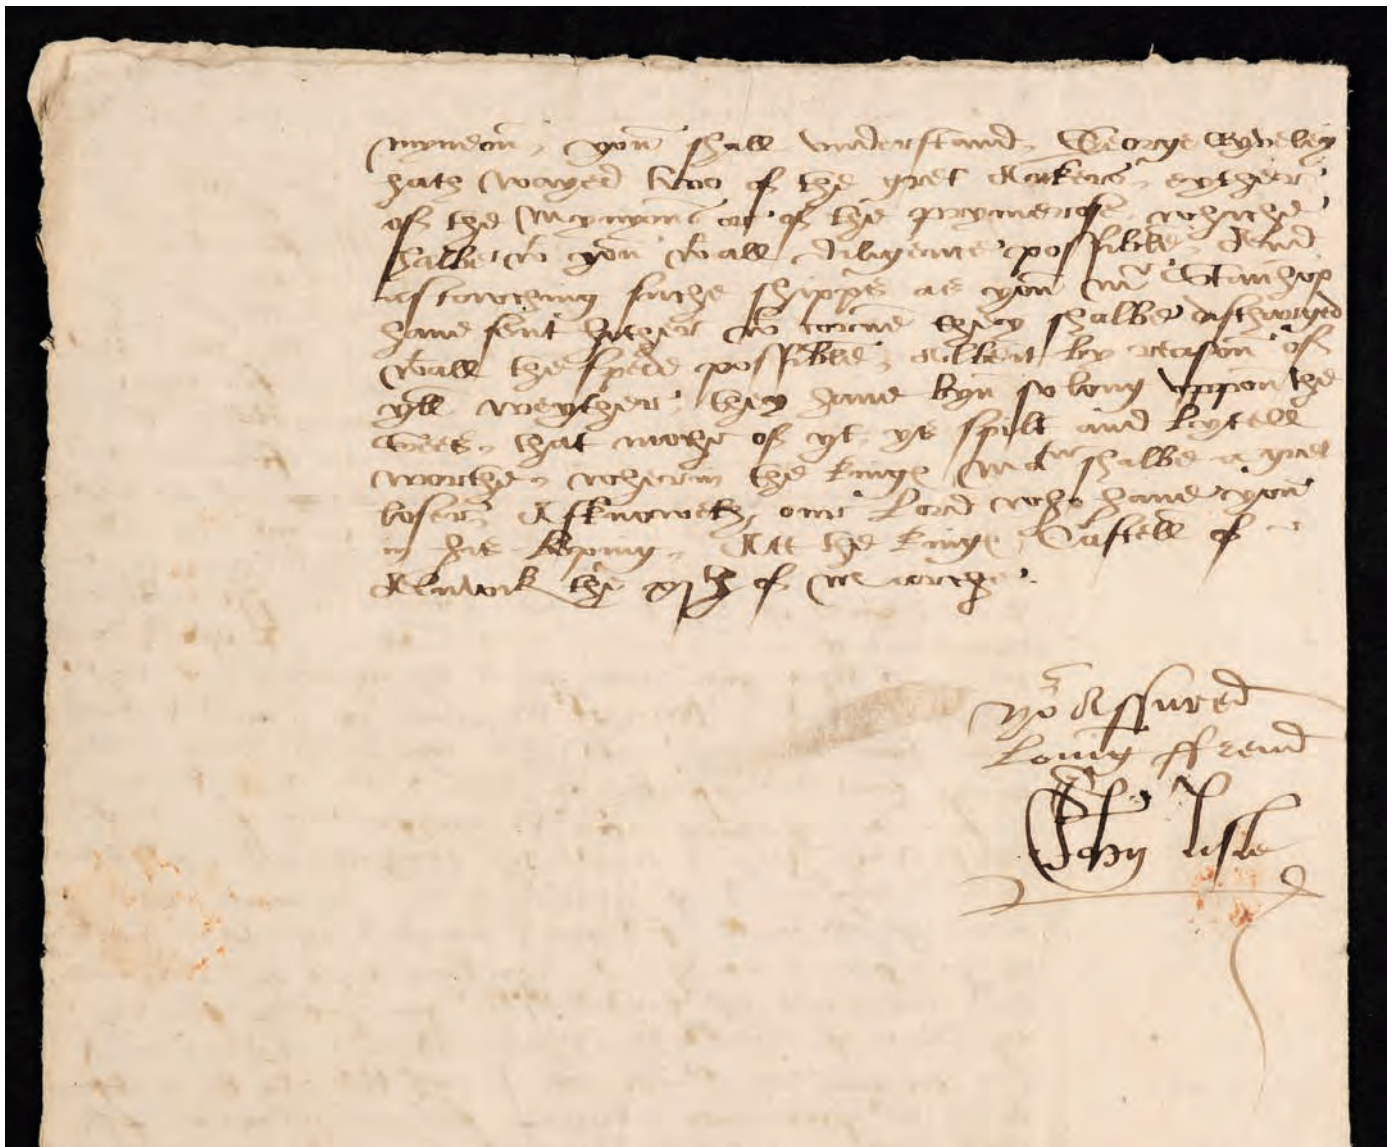 you shall understand George
hath wayed two of the gret Ankers eyther
of the Mynyon or of the prymerose whiche
shalbe wt you wt all diligence possible And
as towching suche shippes as you Mr Stanhop
have sent hither wt corne they shalbe discharged
wt all the spede possible, Albeit by reason of
yll weyther they have byn so long uppon the
Sees, that moche of yt ys spilt and lytell
worthe, wherin the kinges Mate shalbe a gret
loser, As knoweth our Lord who have you
in his keping, Att the kinges Castell of
Alnwik the of Marche.
yor Assured
Loving ffrend
John Lisle